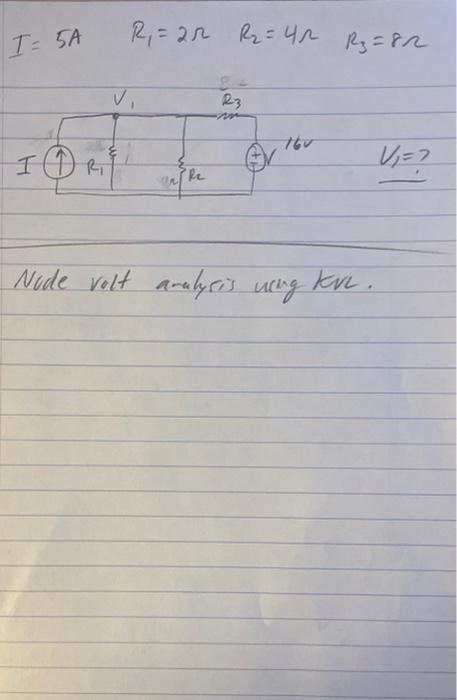 I = 5A R₁ = 2Ω R₂ = 4Ω R₃ = 8Ω
V₁ R₃
I R₁ R₂ + V 16v V₁ = ?
Node volt analysis using KVL.